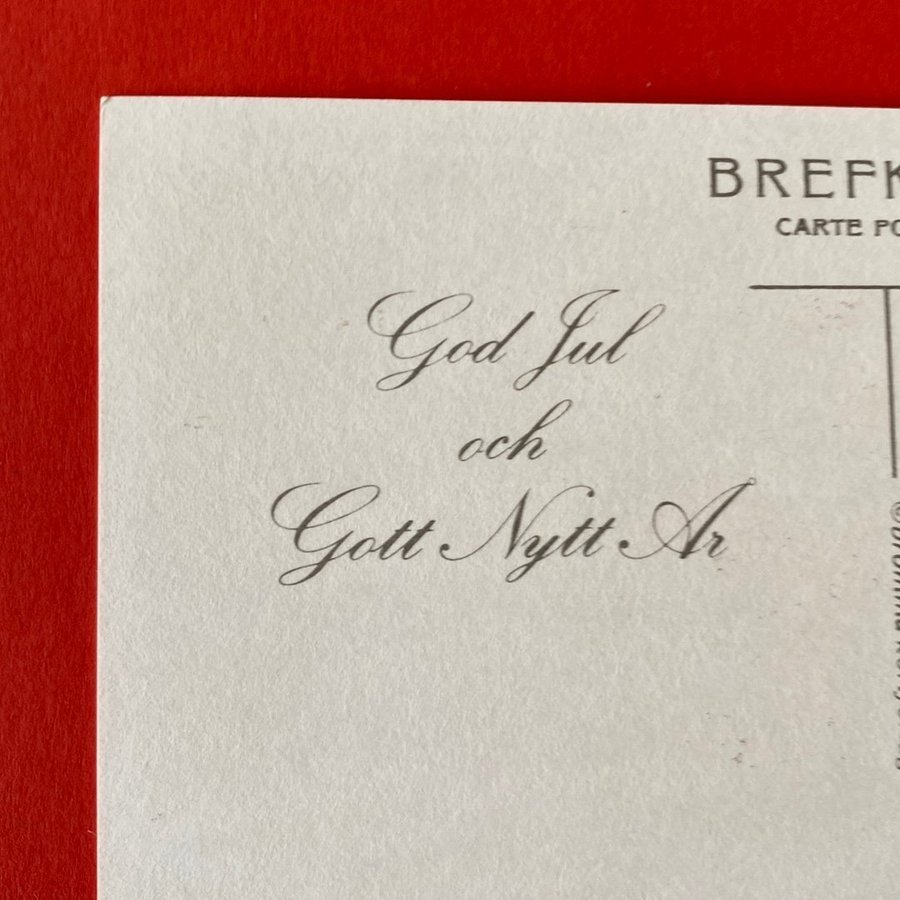 BREFK
CARTE PO
God Jul
och
Gott Nytt Ar